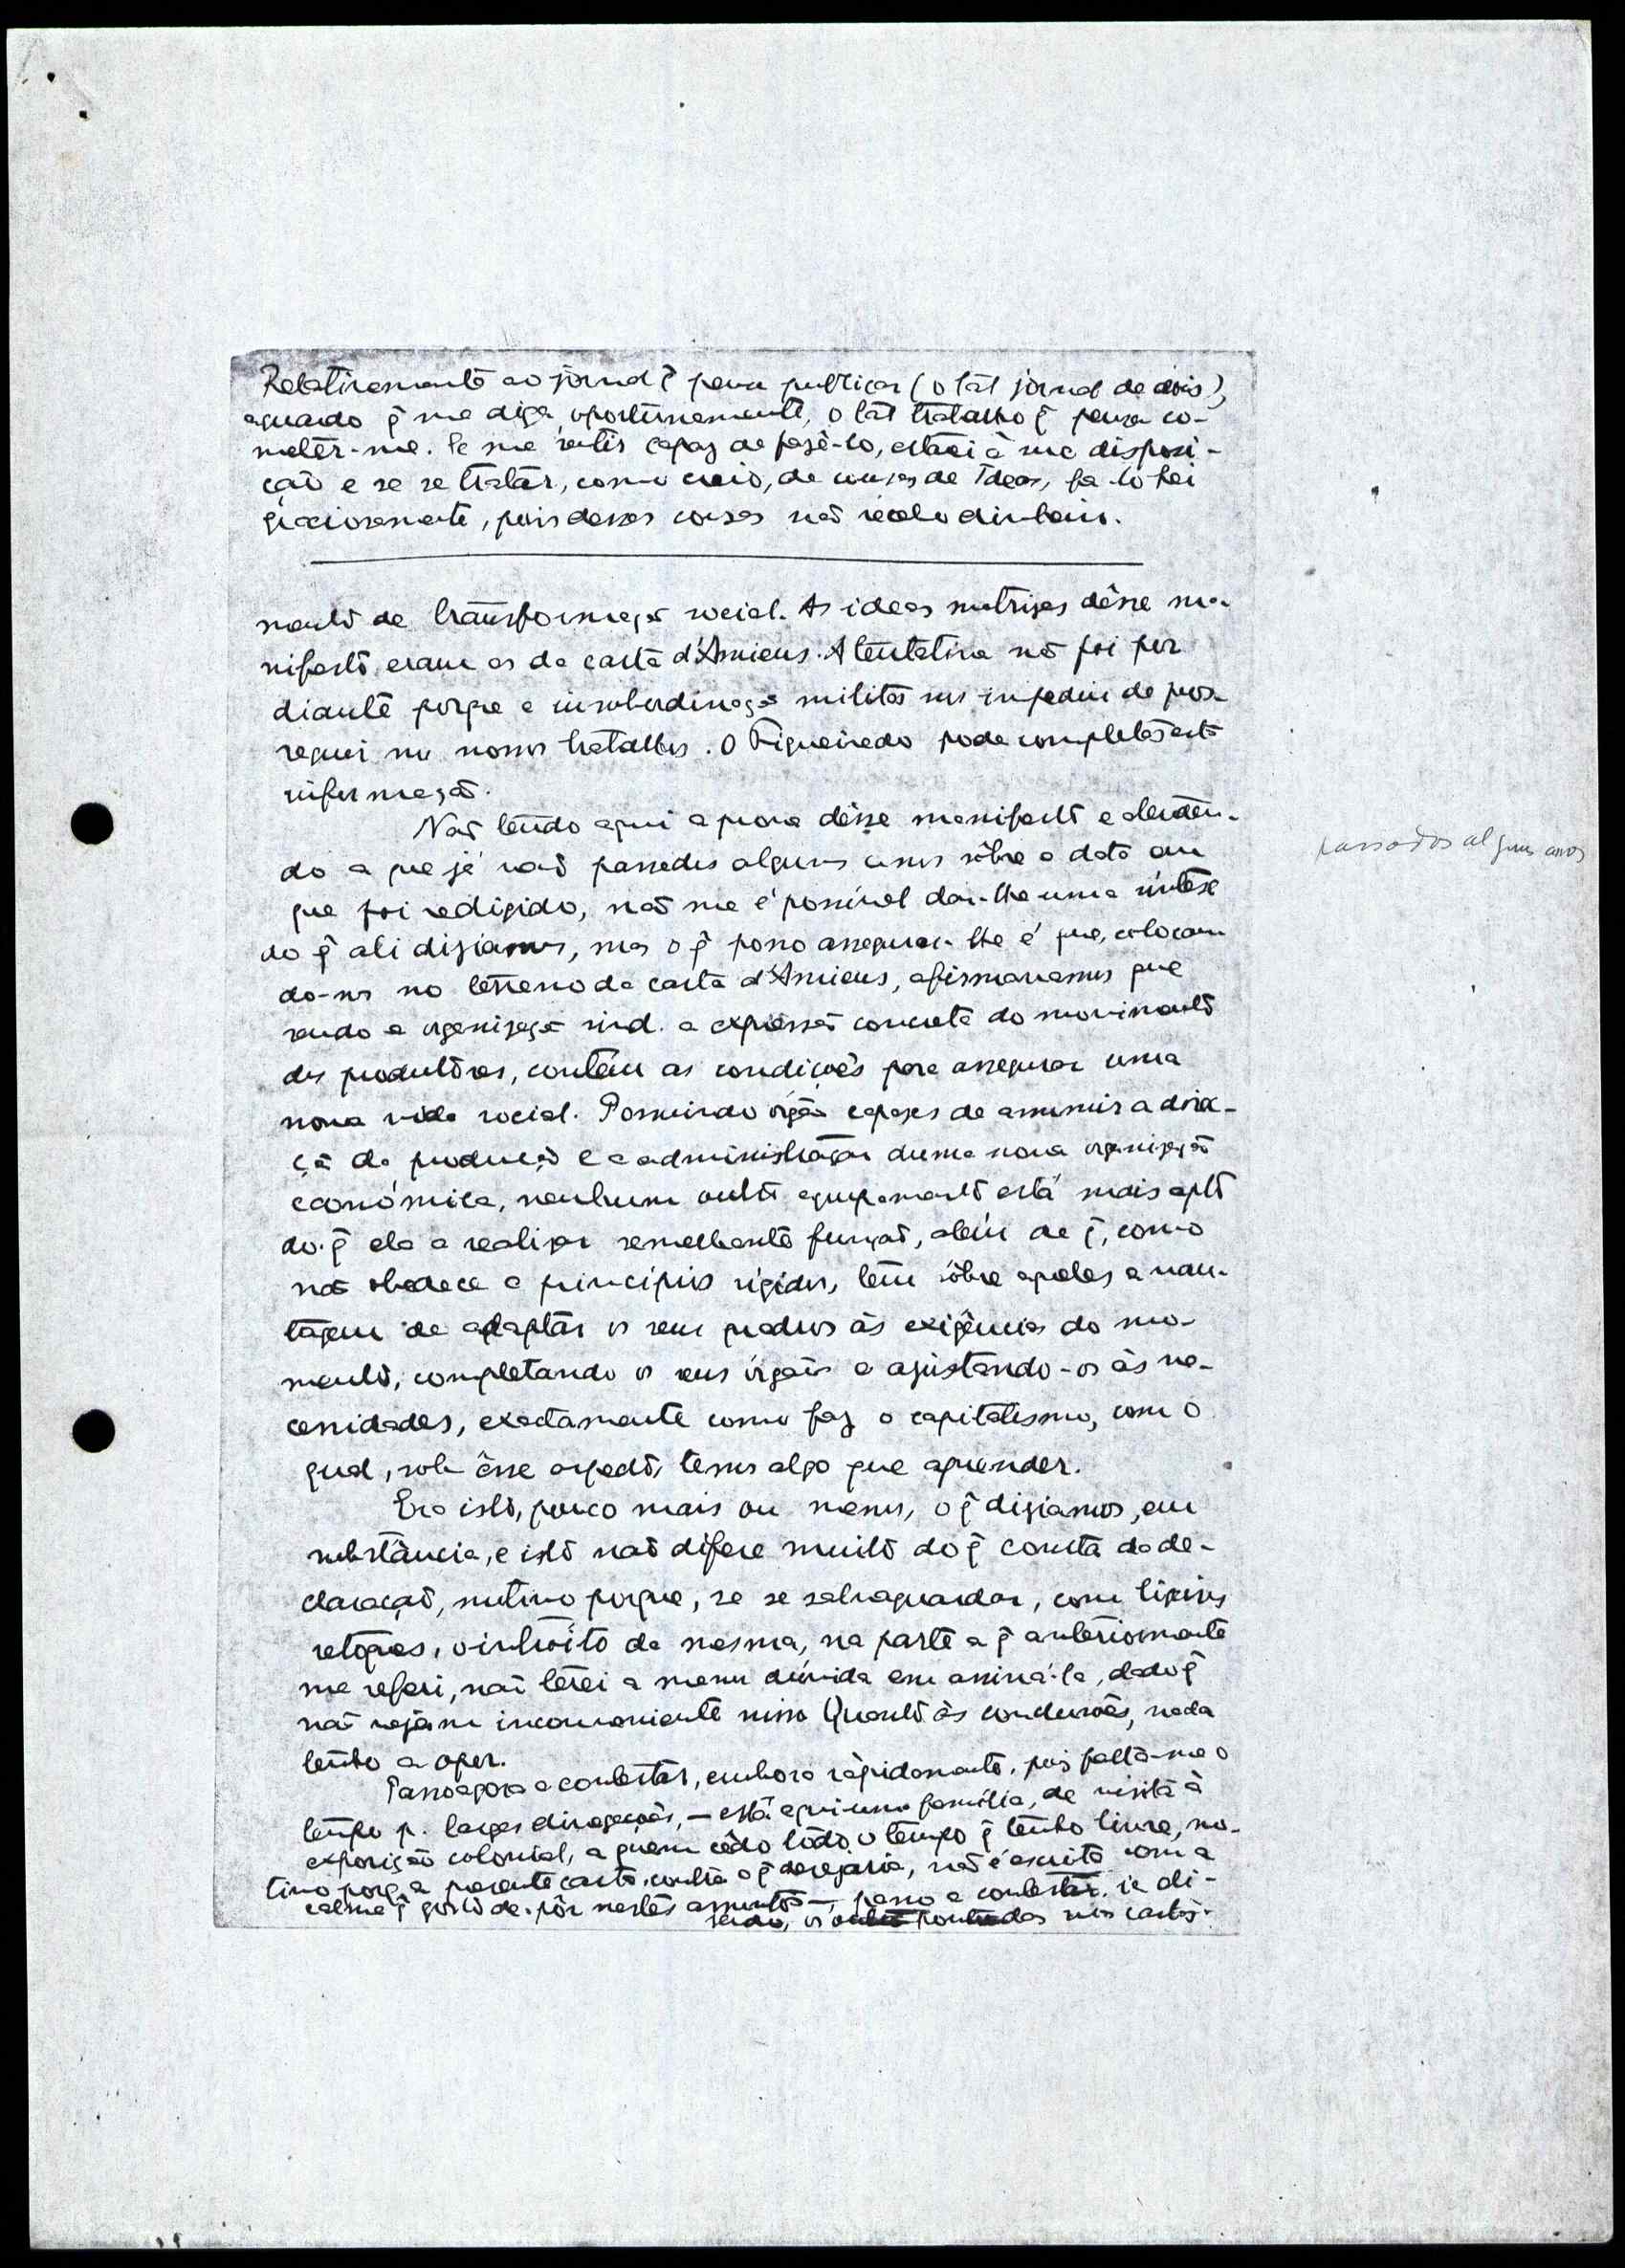 Relativamente ao jornal q̃ pensa publicar (o tal jornal de dois),
aguardo q̃ me diga, oportunamente, o tal trabalho q̃ pensa co-
meter-me. Se me sentir capaz de fazê-lo, estarei à sua disposi-
ção e se se tratar, como creio, de cousas de ideas, fa-lo-hei
graciosamente, pois dessas cousas não recebo dinheiro.
mento de transformação social. As ideas matrizes dêsse ma-
nifesto eram as da carta d'Amiens. A tentativa não foi por
diante porque a insubordinação militar nos impediu de pros-
seguir nos nossos trabalhos. O Figueiredo pode completar esta
informação.
Não tendo aqui a prova dêsse manifesto e atenden-
do a que já são passados alguns anos sôbre a data em
passados alguns anos
que foi redigido, não me é possível dar-lhe uma síntese
do q̃ ali dizíamos, mas o q̃ posso assegurar-lhe é que, colocan-
do-nos no terreno da carta d'Amiens, afirmavamos que
sendo a organização sind. a expressão concreta do movimento
dos produtores, contém as condições para assegurar uma
nova vida social. Possuindo órgãos capazes de assumir a direc-
ção da produção e a administração duma nova organização
económica, nenhum outro agrupamento está mais apto
do q̃ ela a realizar semelhante função, além de q̃, como
não obedece a princípios rígidos, tem sôbre aqueles a van-
tagem de adaptar os seus quadros às exigências do mo-
mento, completando os seus órgãos e ajustando-os às ne-
cessidades, exactamente como faz o capitalismo, com o
qual, sob êsse aspecto, temos algo que aprender.
Era isto, pouco mais ou menos, o q̃ dizíamos, em
substância, e isto não difere muito do q̃ consta da de-
claração, motivo porque, se se salvaguardar, com ligeiros
retoques, o intróito da mesma, na parte a q̃ anteriormente
me referi, não terei a menor dúvida em assiná-la, dado q̃
não vejam inconveniente nisso. Quanto às conclusões, nada
tenho a opor.
Passo agora a contestar, embora ràpidamente, pois falta-me o
tempo p. largas divagações, — está aqui uma família, de visita à
exposição colonial, a quem cedo todo o tempo q̃ tenho livre, mo-
tivo porq̃ a presente carta, contra o q̃ desejaria, não é escrita com a
calma q̃ gosto de pôr nestes assuntos —, passo a contestar, ia di-
zendo, os pontos das suas cartas: